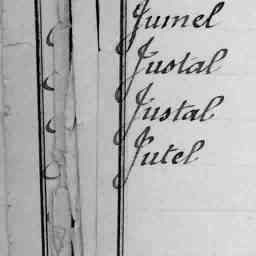 Jumel
Justal
Justal
Jutel